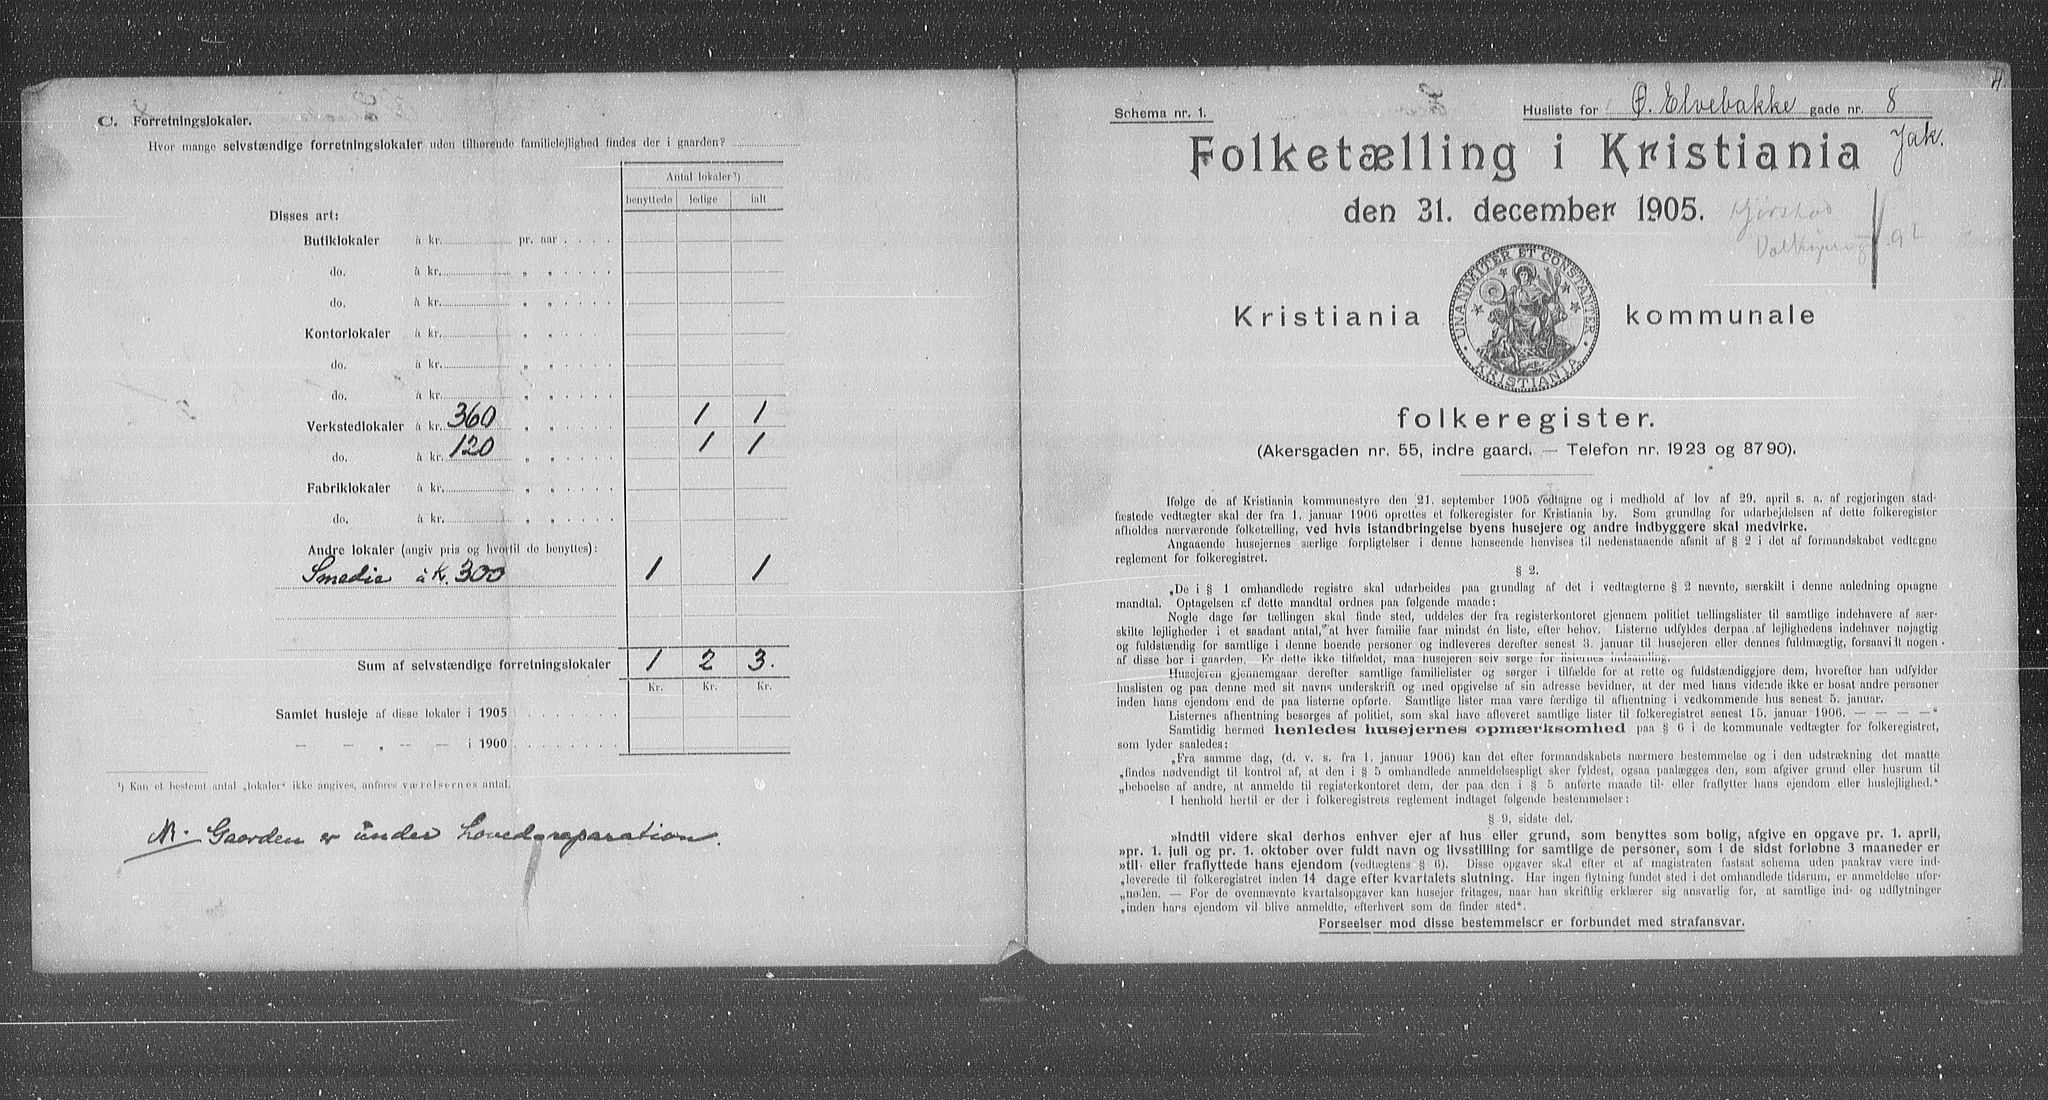 C. Forretningslokaler.
Hvor mange selvstændige forretningslokaler uden tilhørende familielejlighed findes der i gaarden?
Antal lokaler¹)
benyttede ledige ialt
Disses art:
Butiklokaler à kr. pr. aar
do. à kr. „ „
do. à kr. „ „
Kontorlokaler à kr. „ „
do. à kr. „ „
do. à kr. „ „
Verkstedlokaler à kr. 360 „ „ 1 1
do. à kr. 120 „ „ 1 1
Fabriklokaler à kr. „ „
do. à kr. „ „
Andre lokaler (angiv pris og hvortil de benyttes):
Smedie à K. 300 1 1
Sum af selvstændige forretningslokaler 1 2 3.
Kr. Kr. Kr.
Samlet husleje af disse lokaler i 1905
— — „ — — i 1900
¹) Kan et bestemt antal „lokaler“ ikke angives, anføres værelsernes antal.
NB. Gaarden er under Hovedreparation.
4
Schema nr. 1.
Husliste for Ø. Elvebakke gade nr. 8
Jak.
Folketælling i Kristiania
den 31. december 1905.
92
UNANIMITER ET CONSTANTER
KRISTIANIA
Kristiania kommunale
folkeregister.
(Akersgaden nr. 55, indre gaard. — Telefon nr. 1923 og 8790).
Ifølge de af Kristiania kommunestyre den 21. september 1905 vedtagne og i medhold af lov af 29. april s. a. af regjeringen stad-
fæstede vedtægter skal der fra 1. januar 1906 oprettes et folkeregister for Kristiania by. Som grundlag for udarbejdelsen af dette folkeregister
afholdes nærværende folketælling, ved hvis istandbringelse byens husejere og andre indbyggere skal medvirke.
Angaaende husejernes særlige forpligtelser i denne henseende henvises til nedenstaaende afsnit af § 2 i det af formandskabet vedtagne
reglement for folkeregistret.
§ 2.
„De i § 1 omhandlede registre skal udarbeides paa grundlag af det i vedtægterne § 2 nævnte, særskilt i denne anledning optagne
mandtal. Optagelsen af dette mandtal ordnes paa følgende maade:
Nogle dage før tællingen skal finde sted, uddeles der fra registerkontoret gjennem politiet tællingslister til samtlige indehavere af sær-
skilte lejligheder i et saadant antal, at hver familie faar mindst én liste, efter behov. Listerne udfyldes derpaa af lejlighedens indehaver nøjagtig
og fuldstændig for samtlige i denne boende personer og indleveres derefter senest 3. januar til husejeren eller dennes fuldmægtig, forsaavidt nogen
af disse bor i gaarden. Er dette ikke tilfældet, maa husejeren selv sørge for listernes indsamling.
Husejeren gjennemgaar derefter samtlige familielister og sørger i tilfælde for at rette og fuldstændiggjøre dem, hvorefter han udfylder
huslisten og paa denne med sit navns underskrift og med opgivelse af sin adresse bevidner, at der med hans vidende ikke er bosat andre personer
inden hans ejendom end de paa listerne opførte. Samtlige lister maa være færdige til afhentning i vedkommende hus senest 5. januar.
Listernes afhentning besørges af politiet, som skal have afleveret samtlige lister til folkeregistret senest 15. januar 1906. — — — —“
Samtidig hermed henledes husejernes opmærksomhed paa § 6 i de kommunale vedtægter for folkeregistret,
som lyder saaledes:
„Fra samme dag, (d. v. s. fra 1. januar 1906) kan det efter formandskabets nærmere bestemmelse og i den udstrækning det maatte
„findes nødvendigt til kontrol af, at den i § 5 omhandlede anmeldelsespligt sker fyldest, ogsaa paalægges den, som afgiver grund eller husrum til
„beboelse af andre, at anmelde til registerkontoret dem, der paa den i § 5 anførte maade til- eller fraflytter hans ejendom eller huslejlighed.“
I henhold hertil er der i folkeregistrets reglement indtaget følgende bestemmelser:
§ 9, sidste del.
»Indtil videre skal derhos enhver ejer af hus eller grund, som benyttes som bolig, afgive en opgave pr. 1. april,
»pr. 1. juli og pr. 1. oktober over fuldt navn og livsstilling for samtlige de personer, som i de sidst forløbne 3 maaneder er
»til- eller fraflyttede hans ejendom (vedtægtens § 6). Disse opgaver skal efter et af magistraten fastsat schema uden paakrav være ind-
„leverede til folkeregistret inden 14 dage efter kvartalets slutning. Har ingen flytning fundet sted i det omhandlede tidsrum, er anmeldelse ufor-
„nøden. — For de ovennævnte kvartalsopgaver kan husejer fritages, naar han skriftlig erklærer sig ansvarlig for, at samtlige ind- og udflytninger
„inden hans ejendom vil blive anmeldte, efterhvert som de finder sted“.
Forseelser mod disse bestemmelser er forbundet med strafansvar.